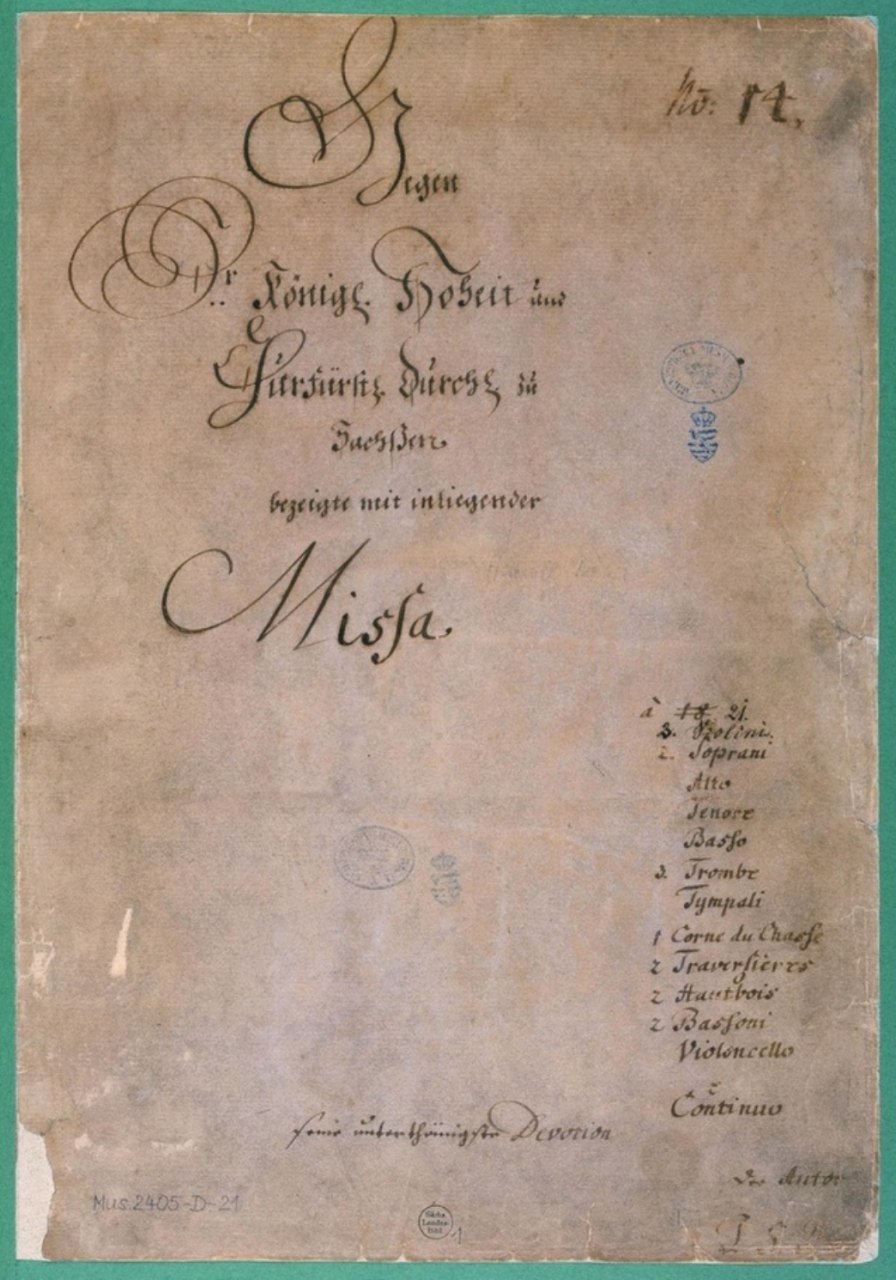 No: 14.
Gegen
Sr. Königl. Hoheit und
Churfürstl. Durchl. zu
Sachßen
bezeigte mit inliegender
Missa
à 18 21.
3. Violini.
2. Soprani
Alto
Tenore
Basso
3. Trombe
Tympali
1 Corne du Chasse
2 Traversieres
2 Hautbois
2 Bassoni
Violoncello
Continuo
seine unterthänigste Devotion
der Autor
J S B
Mus. 2405-D-21
Sächs.
Landes-
Bibl.
1